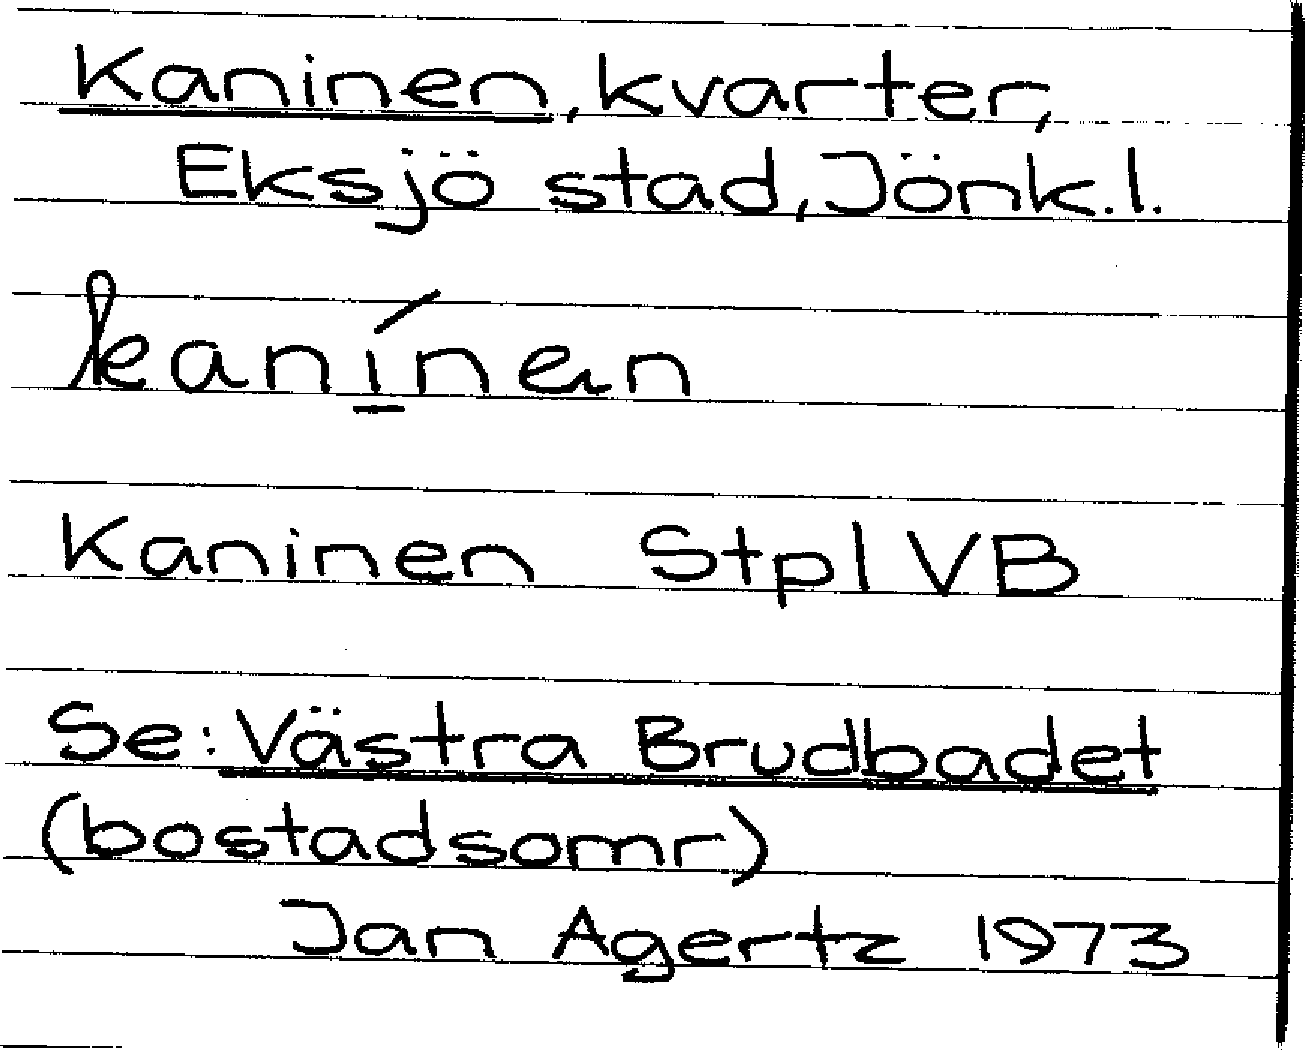 Kaninen, kvarter,
Eksjö stad, Jönk.l.
kanínen
Kaninen Stpl VB
Se: Västra Brudbadet
(bostadsomr)
Jan Agertz 1973